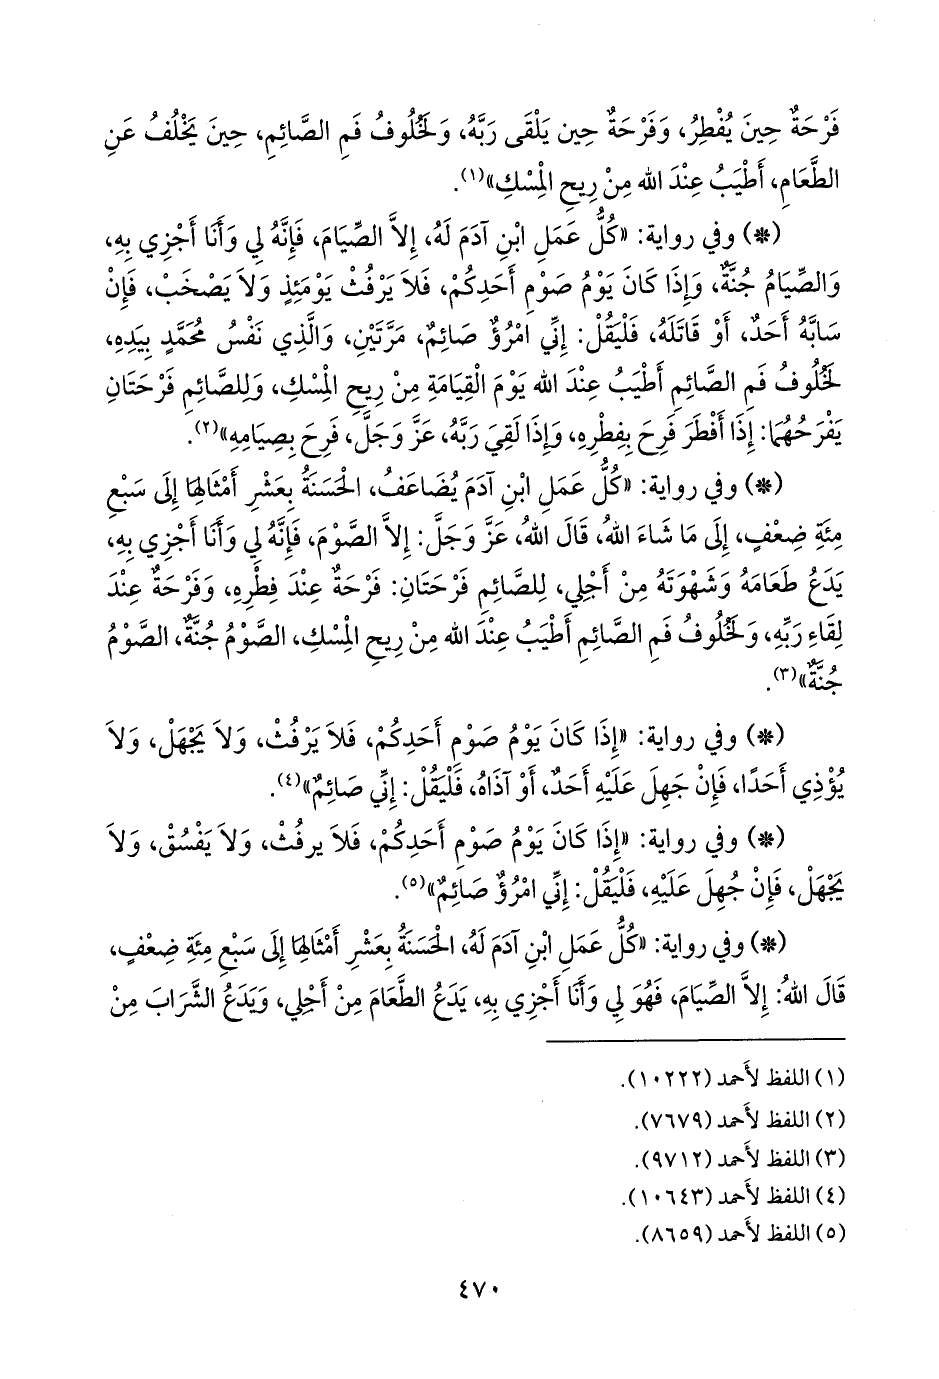 فَرْحَةٌ حِينَ يُفْطِرُ، وَفَرْحَةٌ حِين يَلْقَى رَبَّهُ، وَلَخُلُوفُ فَمِ الصَّائِمِ، حِينَ يَخْلُفُ عَنِ
الطَّعَامِ، أَطْيَبُ عِنْدَ الله مِنْ رِيحِ الْمِسْكِ»(١).
(*) وفي رواية: «كُلُّ عَمَلِ ابْنِ آدَمَ لَهُ، إِلاَّ الصِّيَامَ، فَإِنَّهُ لِي وَأَنَا أَجْزِي بِهِ،
وَالصِّيَامُ جُنَّةٌ، وَإِذَا كَانَ يَوْمُ صَوْمِ أَحَدِكُمْ، فَلاَ يَرْفُثْ يَوْمَئِذٍ وَلاَ يَصْخَبْ، فَإِنْ
سَابَّهُ أَحَدٌ، أَوْ قَاتَلَهُ، فَلْيَقُلْ: إِنِّي امْرُؤٌ صَائِمٌ، مَرَّتَيْنِ، وَالَّذِي نَفْسُ مُحَمَّدٍ بِيَدِهِ،
لَخُلُوفُ فَمِ الصَّائِمِ أَطْيَبُ عِنْدَ الله يَوْمَ الْقِيَامَةِ مِنْ رِيحِ الْمِسْكِ، وَلِلصَّائِمِ فَرْحَتَانِ
يَفْرَحُهُمَا: إِذَا أَفْطَرَ فَرِحَ بِفِطْرِهِ، وَإِذَا لَقِيَ رَبَّهُ، عَزَّ وَجَلَّ، فَرِحَ بِصِيَامِهِ»(٢).
(*) وفي رواية: «كُلُّ عَمَلِ ابْنِ آدَمَ يُضَاعَفُ، الْحَسَنَةُ بِعَشْرِ أَمْثَالِهَا إِلَى سَبْعِ
مِئَةِ ضِعْفٍ، إِلَى مَا شَاءَ اللهُ، قَالَ اللهُ، عَزَّ وَجَلَّ: إِلاَّ الصَّوْمَ، فَإِنَّهُ لِي وَأَنَا أَجْزِي بِهِ،
يَدَعُ طَعَامَهُ وَشَهْوَتَهُ مِنْ أَجْلِي، لِلصَّائِمِ فَرْحَتَانِ: فَرْحَةٌ عِنْدَ فِطْرِهِ، وَفَرْحَةٌ عِنْدَ
لِقَاءِ رَبِّهِ، وَلَخُلُوفُ فَمِ الصَّائِمِ أَطْيَبُ عِنْدَ الله مِنْ رِيحِ الْمِسْكِ، الصَّوْمُ جُنَّةٌ، الصَّوْمُ
جُنَّةٌ»(٣).
(*) وفي رواية: «إِذَا كَانَ يَوْمُ صَوْمِ أَحَدِكُمْ، فَلاَ يَرْفُثْ، وَلاَ يَجْهَلْ، وَلاَ
يُؤْذِي أَحَدًا، فَإِنْ جَهِلَ عَلَيْهِ أَحَدٌ، أَوْ آذَاهُ، فَلْيَقُلْ: إِنِّي صَائِمٌ»(٤).
(*) وفي رواية: «إِذَا كَانَ يَوْمُ صَوْمِ أَحَدِكُمْ، فَلاَ يرفُثْ، وَلاَ يَفْسُقْ، وَلاَ
يَجْهَلْ، فَإِنْ جُهِلَ عَلَيْهِ، فَلْيَقُلْ: إِنِّي امْرُؤٌ صَائِمٌ»(٥).
(*) وفي رواية: «كُلُّ عَمَلِ ابْنِ آدَمَ لَهُ، الْحَسَنَةُ بِعَشْرِ أَمْثَالِهَا إِلَى سَبْعِ مِئَةِ ضِعْفٍ،
قَالَ اللهُ: إِلاَّ الصِّيَامَ، فَهُوَ لِي وَأَنَا أَجْزِي بِهِ، يَدَعُ الطَّعَامَ مِنْ أَجْلِي، وَيَدَعُ الشَّرَابَ مِنْ
(١) اللفظ لأحمد (١٠٢٢٢).
(٢) اللفظ لأحمد (٧٦٧٩).
(٣) اللفظ لأحمد (٩٧١٢).
(٤) اللفظ لأحمد (١٠٦٤٣).
(٥) اللفظ لأحمد (٨٦٥٩).
٤٧٠